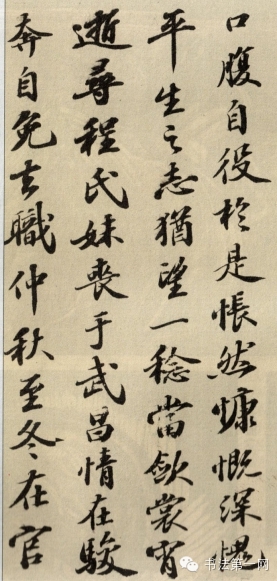 口腹自役於是悵然慷慨深愧
平生之志猶望一稔當歛裳宵
逝尋程氏妹喪于武昌情在駿
奔自免去職仲秋至冬在官
书法第一网